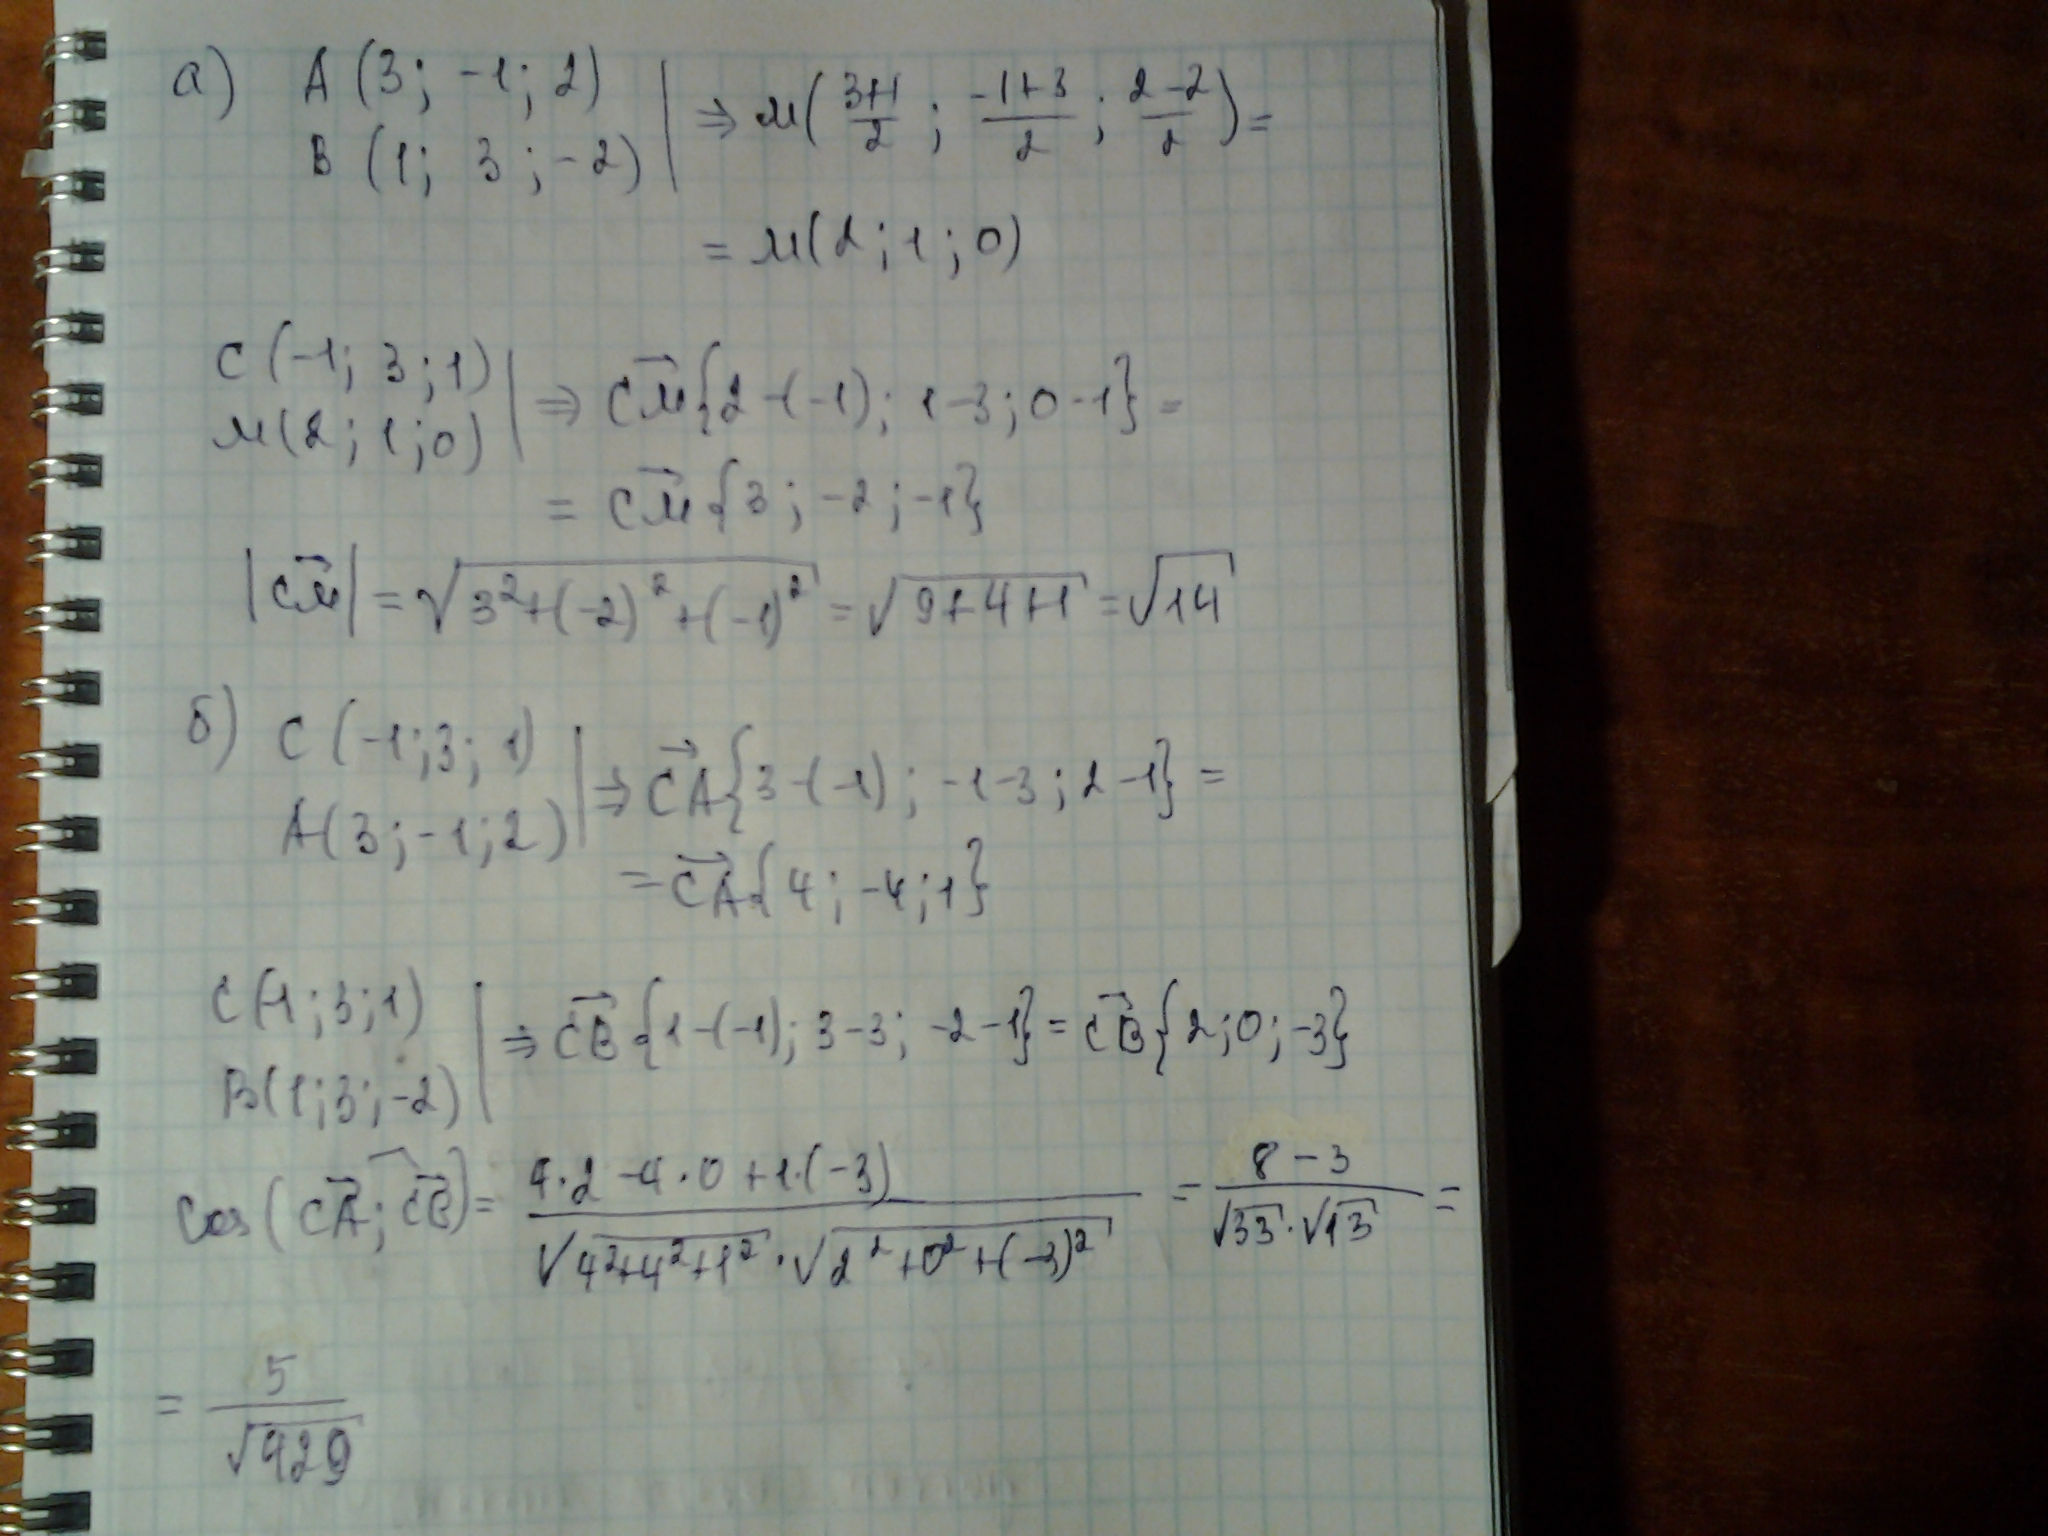 а) A (3; -1; 2)
B (1; 3; -2) | ⇒ M((3+1)/2; (-1+3)/2; (2-2)/2) =
= M(2; 1; 0)
C (-1; 3; 1)
M(2; 1; 0) | ⇒ CM⃗{2-(-1); 1-3; 0-1} =
= CM⃗{3; -2; -1}
|CM⃗| = √(3²+(-2)²+(-1)²) = √(9+4+1) = √14
б) C (-1; 3; 1)
A(3; -1; 2) | ⇒ CA⃗{3-(-1); -1-3; 2-1} =
= CA⃗{4; -4; 1}
C(-1; 3; 1)
B(1; 3; -2) | ⇒ CB⃗{1-(-1); 3-3; -2-1} = CB⃗{2; 0; -3}
cos(CA⃗; CB⃗) = (4·2-4·0+1·(-3))/(√(4²+4²+1²)·√(2²+0²+(-3)²)) = (8-3)/(√33·√13) =
= 5/√429